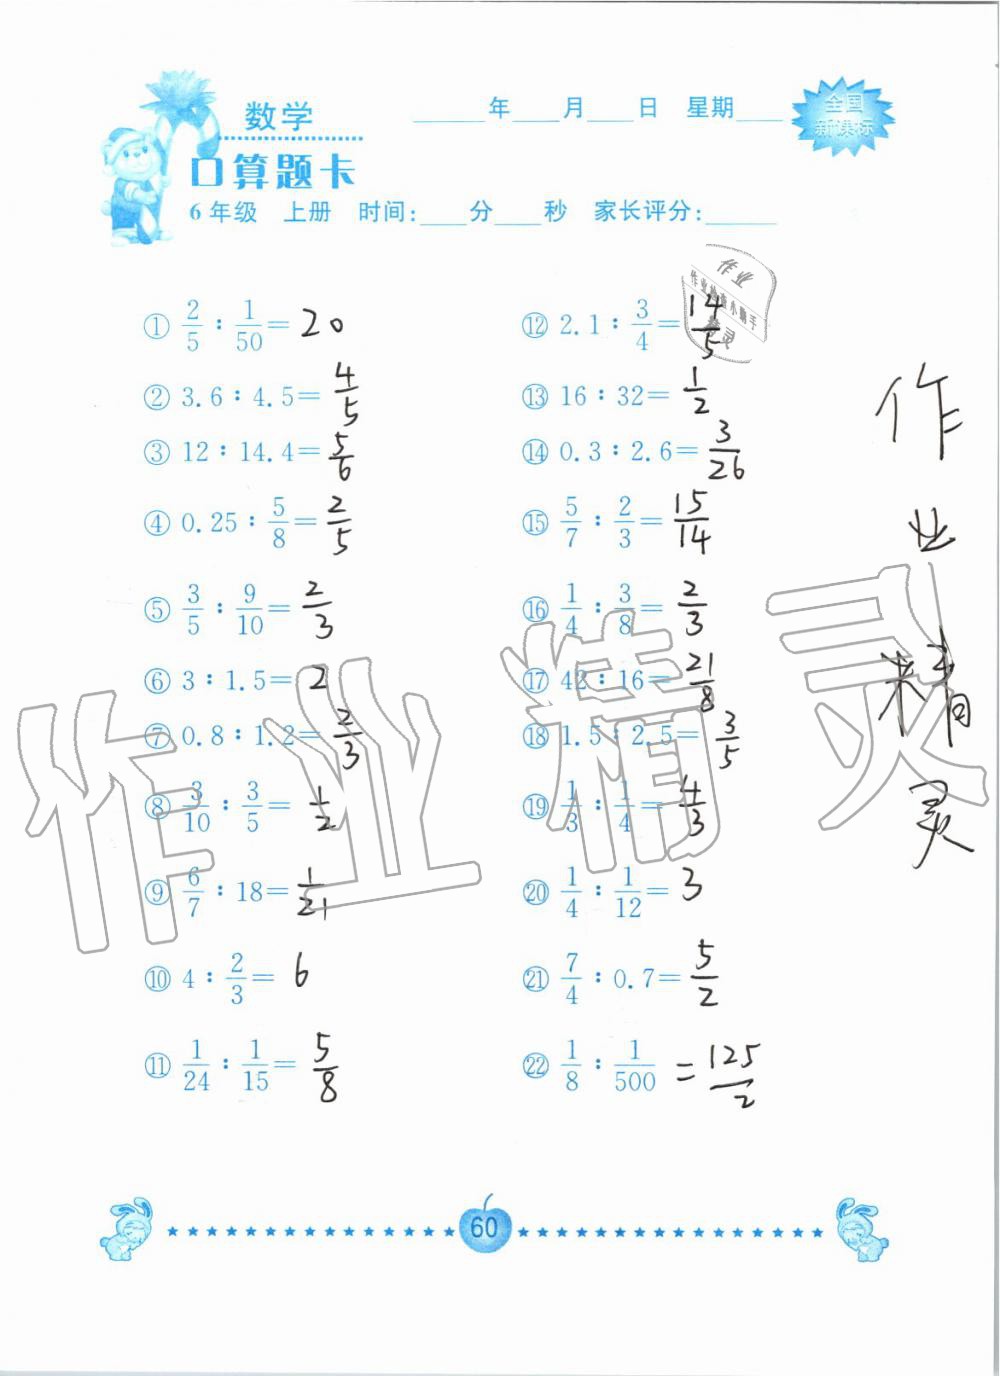 数学
口算题卡
____年____月____日 星期____
全国
新课标
6年级 上册 时间:____分____秒 家长评分:______
作业
① 2/5 : 1/50 = 20
② 3.6 : 4.5 = 4/5
③ 12 : 14.4 = 5/6
④ 0.25 : 5/8 = 2/5
⑤ 3/5 : 9/10 = 2/3
⑥ 3 : 1.5 = 2
⑦ 0.8 : 1.2 = 2/3
⑧ 3/10 : 3/5 = 1/2
⑨ 6/7 : 18 = 1/21
⑩ 4 : 2/3 = 6
⑪ 1/24 : 1/15 = 5/8
⑫ 2.1 : 3/4 = 14/5
⑬ 16 : 32 = 1/2
⑭ 0.3 : 2.6 = 3/26
⑮ 5/7 : 2/3 = 15/14
⑯ 1/4 : 3/8 = 2/3
⑰ 42 : 16 = 21/8
⑱ 1.5 : 2.5 = 3/5
⑲ 1/3 : 1/4 = 4/3
⑳ 1/4 : 1/12 = 3
㉑ 7/4 : 0.7 = 5/2
㉒ 1/8 : 1/500 = 125/2
作
业
精
灵
作业精灵
60